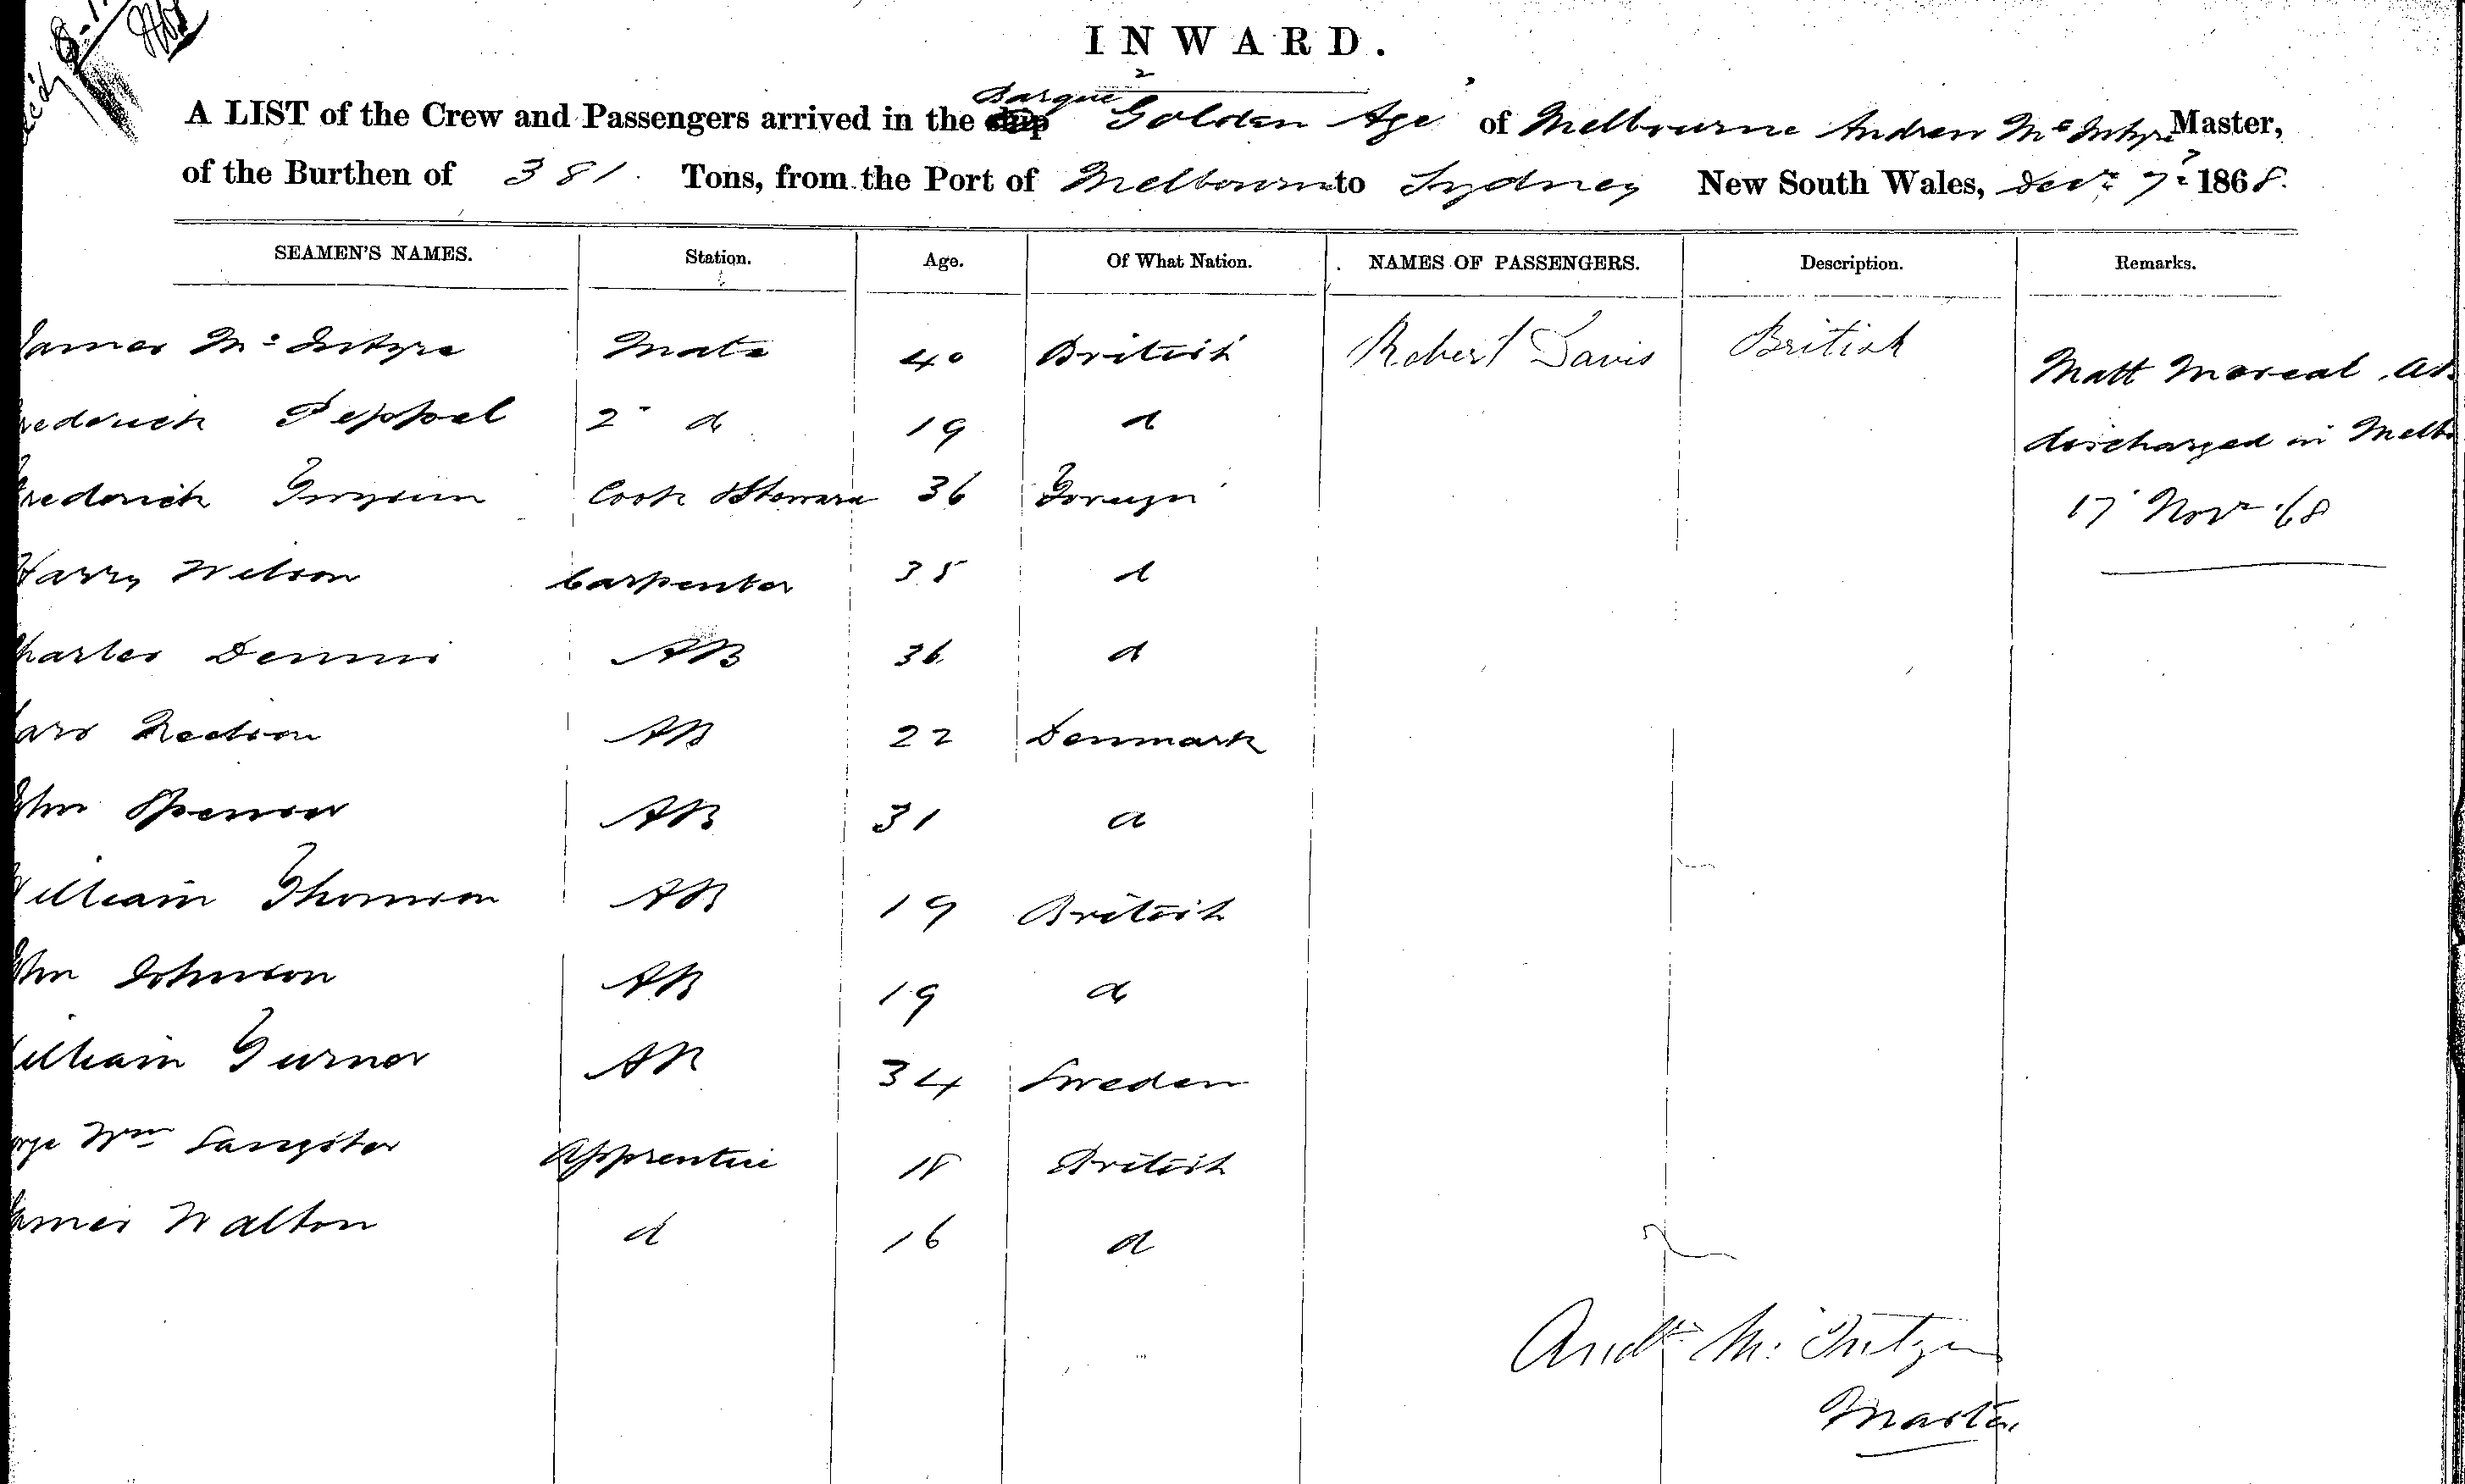 INWARD.
A LIST of the Crew and Passengers arrived in the Barque Golden Age of Melbourne Andrew Mc Intyre Master,
of the Burthen of 381 Tons, from the Port of Melbourne to Sydney New South Wales, Decr 7th 1868.
SEAMEN'S NAMES. Station. Age. Of What Nation. NAMES OF PASSENGERS. Description. Remarks.
James Mc Intyre Mate 40 British Robert Davis British Matt
rederick Peppel 2 d 19 d discharged in Melb
rederick Cook & Steward 36 Foreign 17 Novr 68
Harry Wilson Carpenter 35 d
harles Dennis AB 36 d
ars AB 22 Denmark
John Spencer AB 31 d
William Thomson AB 19 British
John Johnson AB 19 d
William Turner AB 34 Sweden
orge Wm Sangster Apprentice 18 British
James Walton d 16 d
Andw Mc Intyre
Master